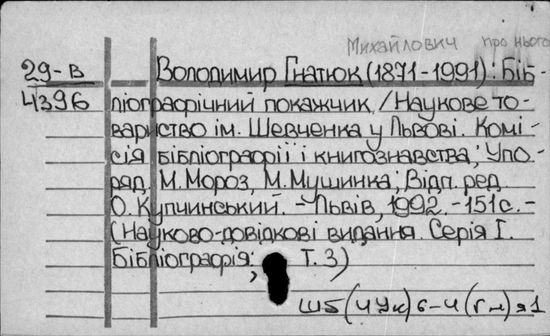 Михайлович про нього
29-В Володимир Гнатюк (1871-1991): Біб-
4396 ліографічний покажчик /Наукове то-
вариство ім. Шевченка у Львові. Комі-
сія бібліографії і книгознавства; Упо-
ряд. М.Мороз, М.Мушинка; Відп. ред.
О. Купчинський. -Львів, 1992. -151с. -
(Науково-довідкові видання. Серія І.
Бібліографія; Т. 3)
Ш5(4Ук)6-4